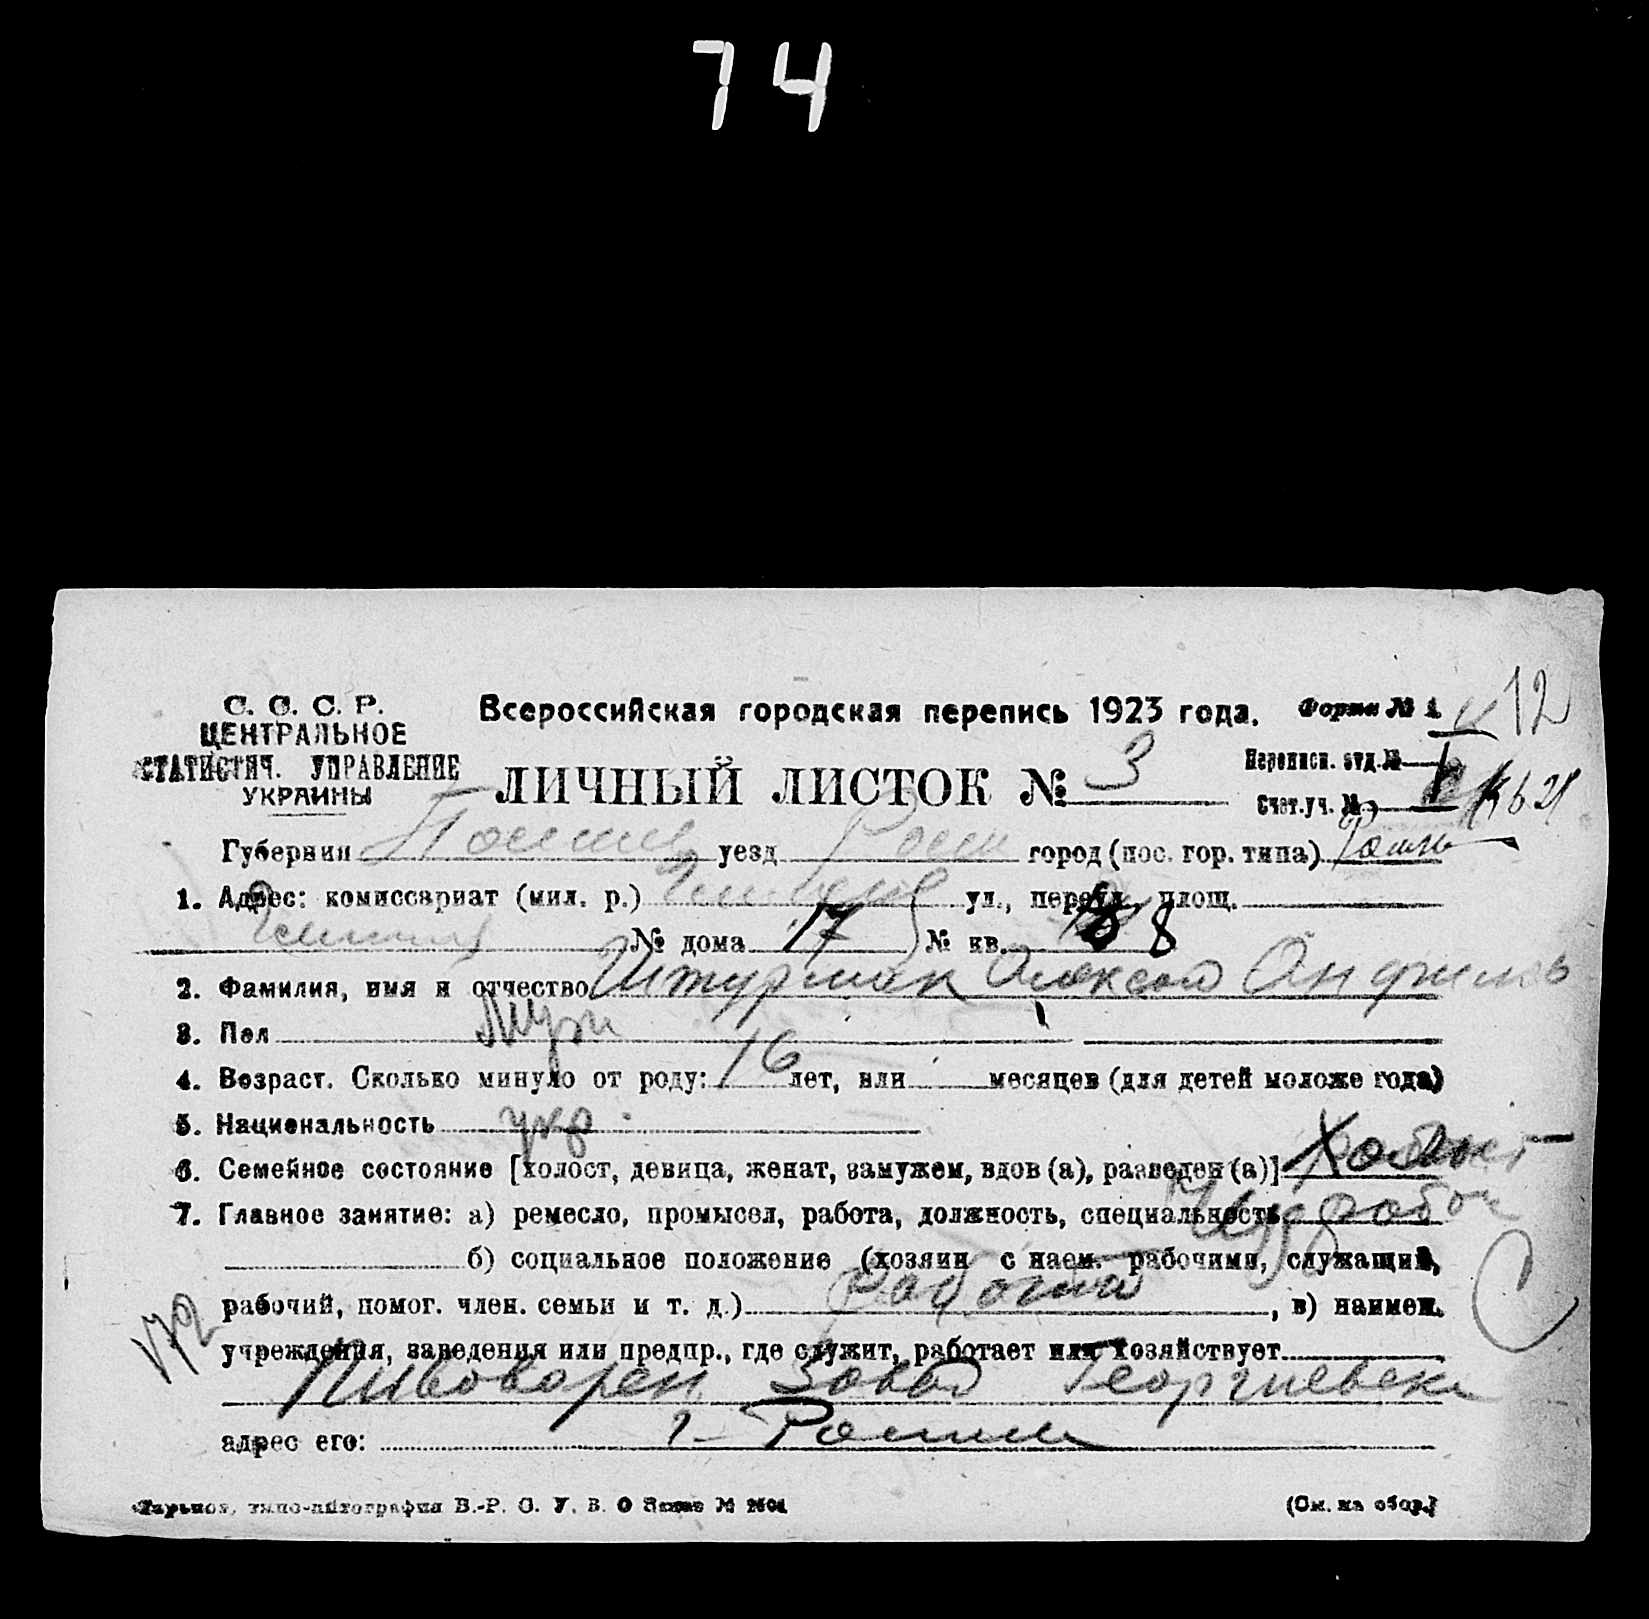 74
С. С. С. Р.
ЦЕНТРАЛЬНОЕ
СТАТИСТИЧ. УПРАВЛЕНИЕ
УКРАИНЫ
Всероссийская городская перепись 1923 года.
Форма № 1
12
ЛИЧНЫЙ ЛИСТОК № 3
Переписн. отд. №
Счет. уч. №
Губерния уезд город (пос. гор. типа)
1. Адрес: комиссариат (мил. р.) ул., переул., площ.
№ дома 17 № кв. 8
2. Фамилия, имя и отчество Штурман
3. Пол Муж
4. Возраст. Сколько минуло от роду: 16 лет, или месяцев (для детей моложе года)
5. Национальность укр.
6. Семейное состояние [холост, девица, женат, замужем, вдов (а), разведен (а)] Холост
7. Главное занятие: а) ремесло, промысел, работа, должность, специальность
б) социальное положение (хозяин с наем. рабочими, служащий,
рабочий, помог. член. семьи и т. д.) Рабочий, в) наимен.
172
учреждения, заведения или предпр., где служит, работает или хозяйствует
Пивоварен Завод Георгиевск
адрес его: г. Ромны
Харьков, типо-литография В.-Р. С. У. В. О Заказ №
(См. на обор.)